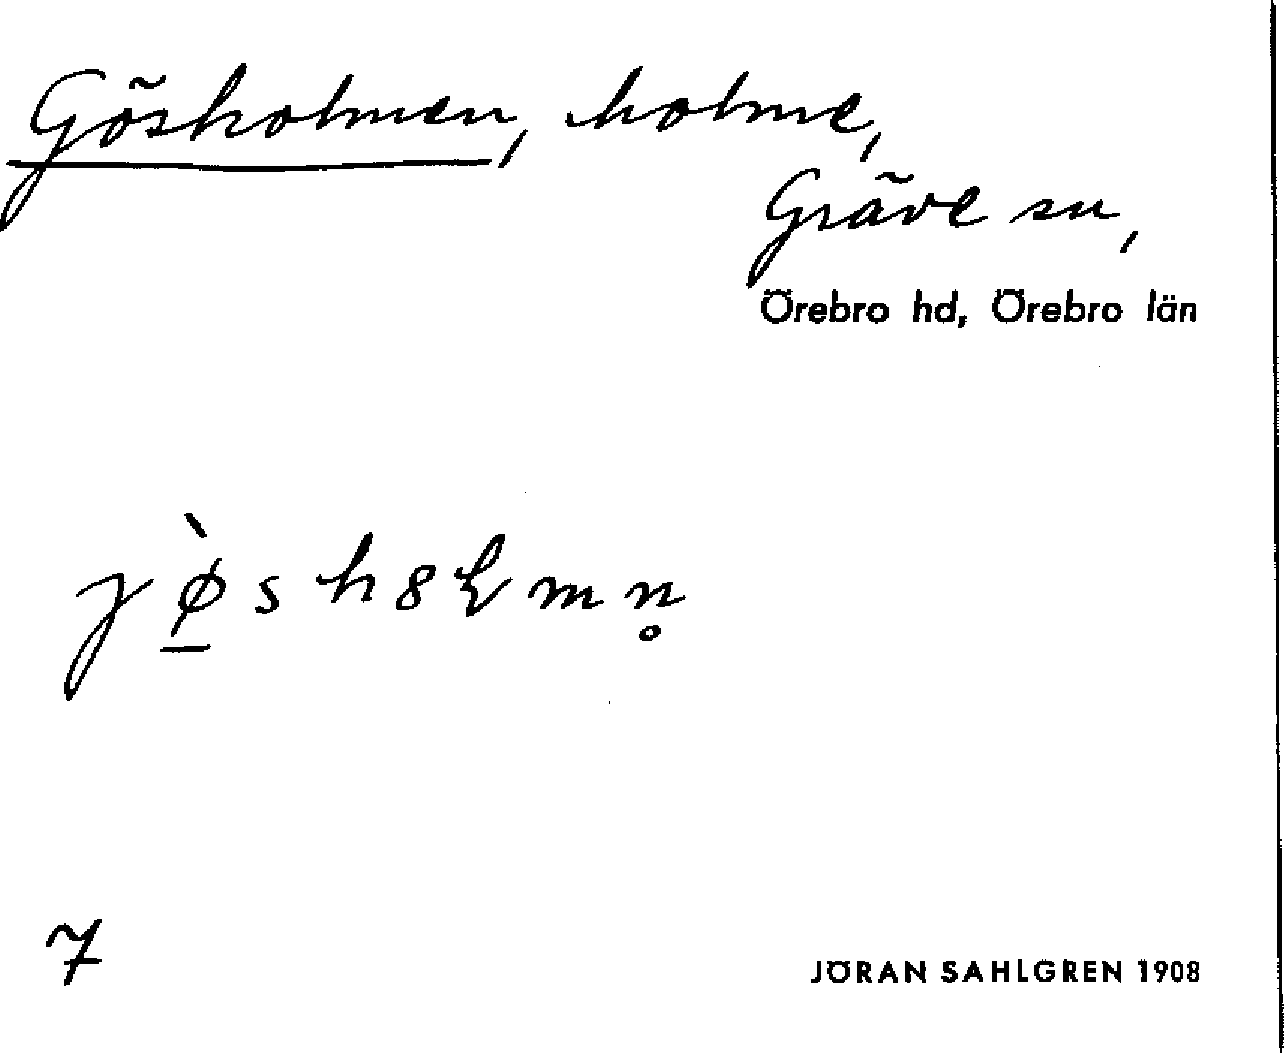 Gösholmen, holme,
Gräve sn,
Örebro hd, Örebro län
jø̠̀sh8ɫmn̥
7
JÖRAN SAHLGREN 1908